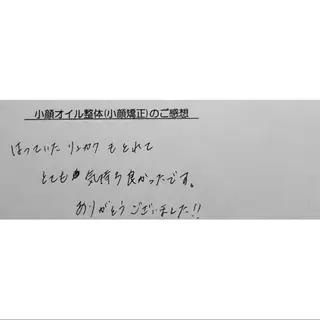 小顔オイル整体(小顔矯正)のご感想
はっていたリンカクもとれて
とても気持ち良かったです。
ありがとうございました!!